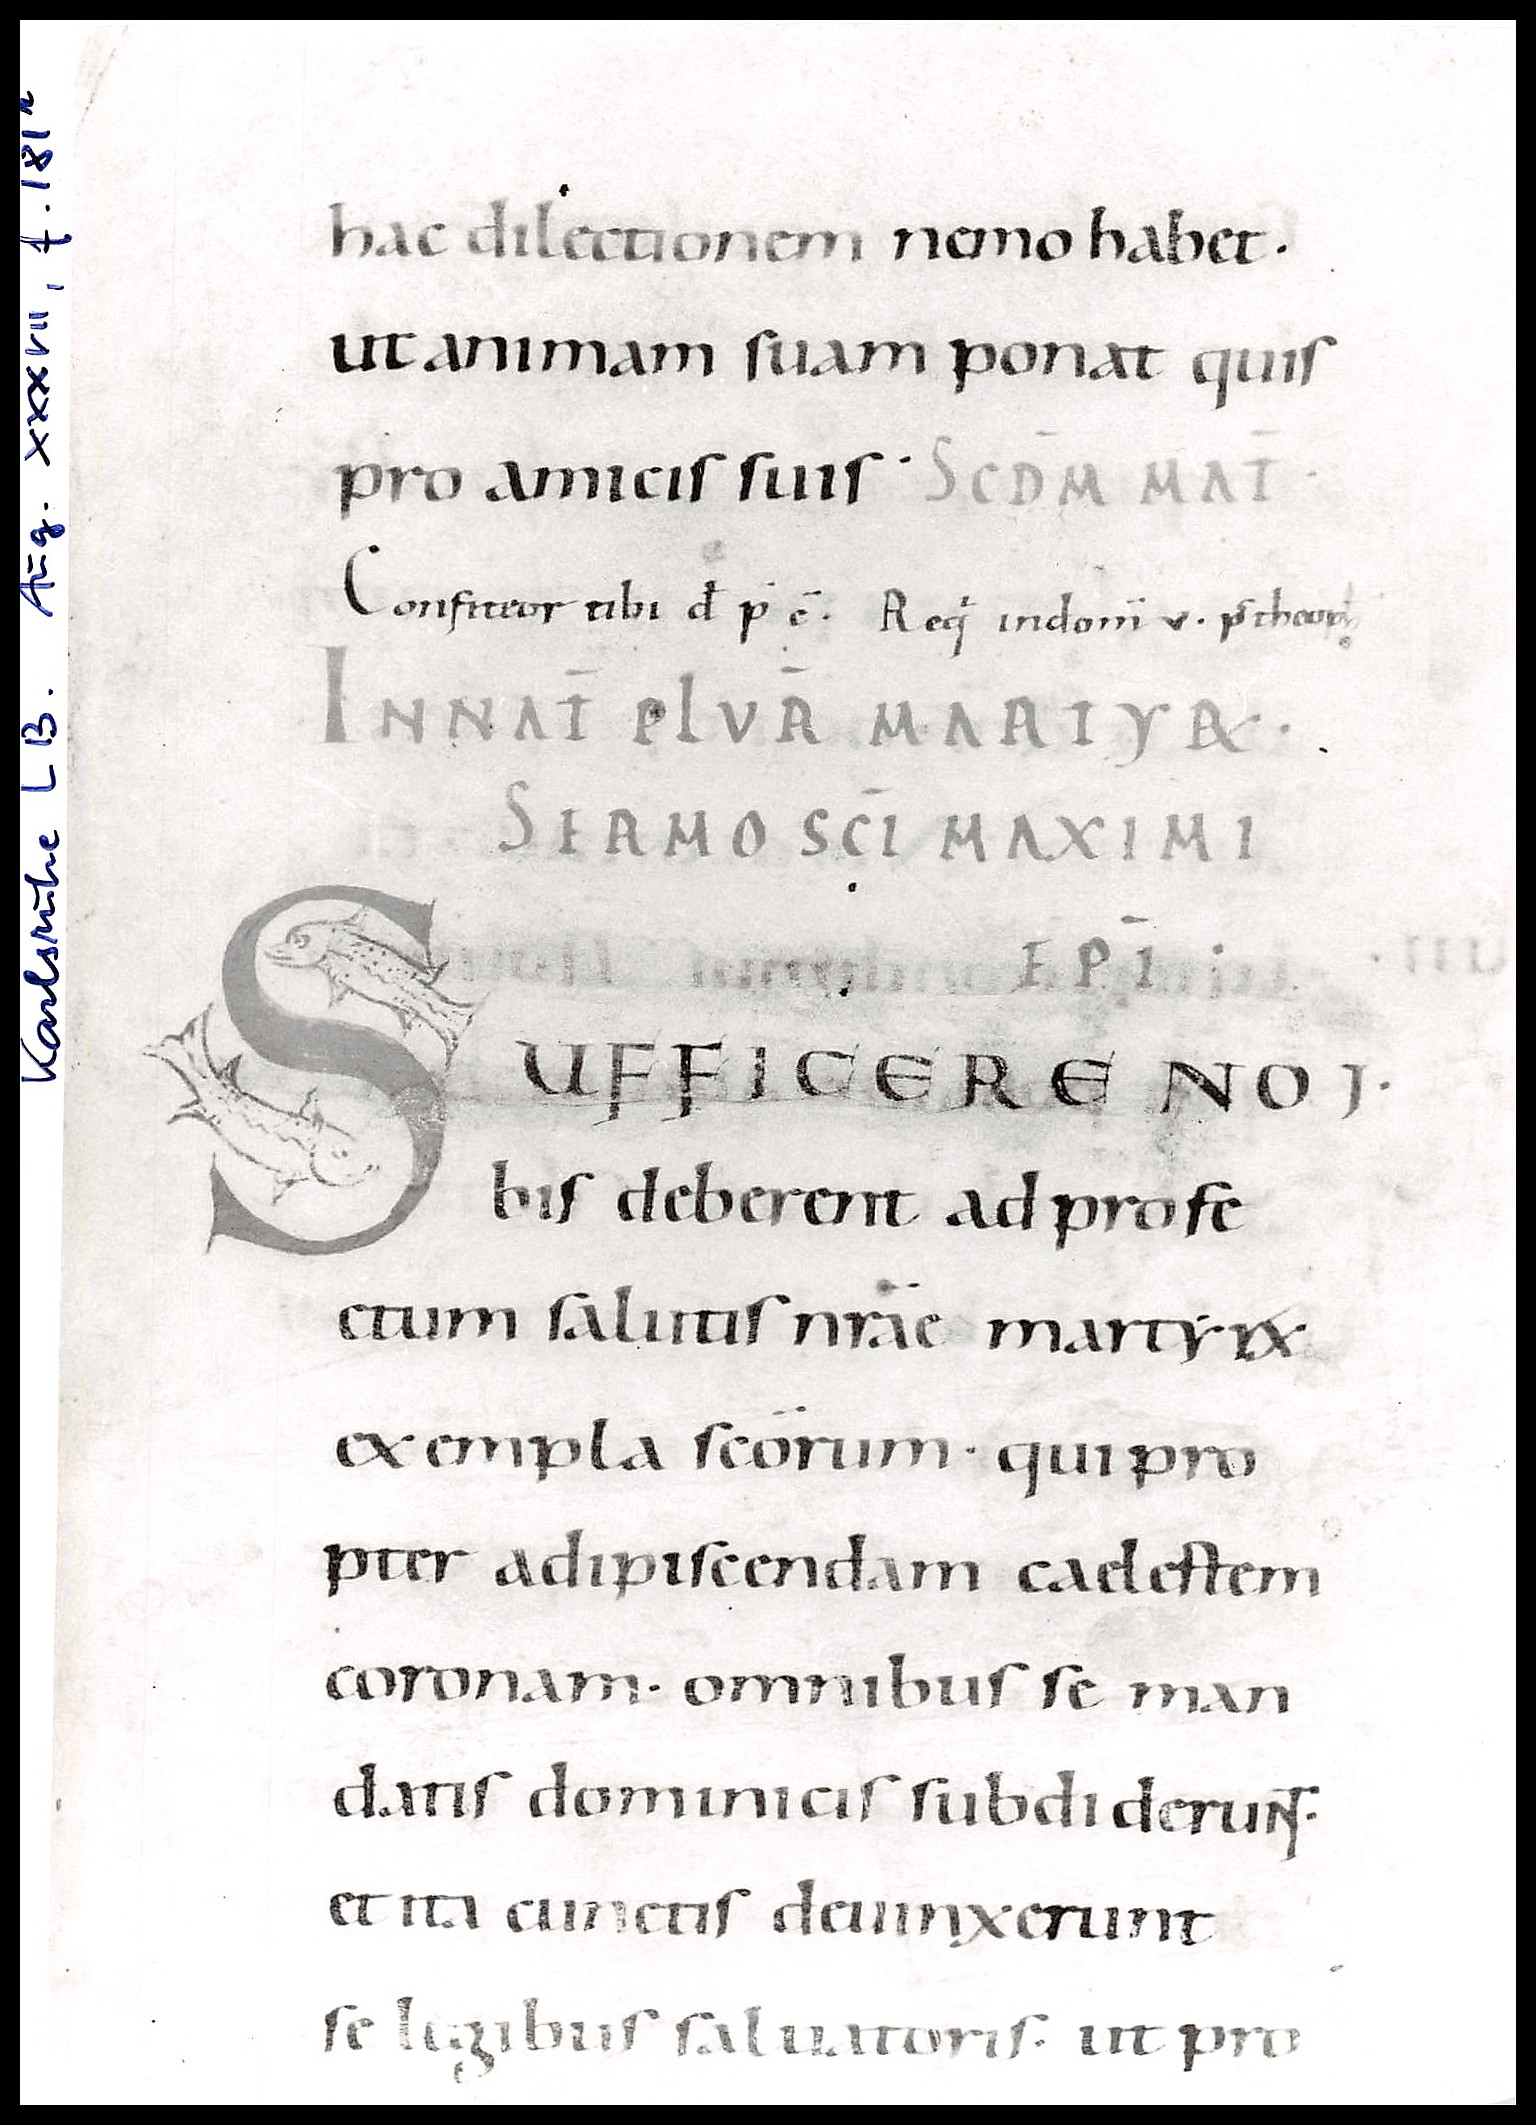 Karlsruhe LB. Aug. XXXVII, f. 181r
hac dilectionem nemo habet·
ut animam suam ponat quis
pro amicis suis· SCD̄M MAT̄·
Confiteor tibi
INNAT̄ PLVR̄ MARTYRꝜ·
SERMO SC̄I MAXIMI
EPĪ
SUFFICERE NO
bis deberent ad profe
ctum salutis nr̄ae martyꝝ
exempla sc̄orum· qui pro
pter adipiscendam caelestem
coronam· omnibus se man
datis dominicis subdiderunt·
et ita cunctis deuinxerunt
se legibus saluatoris· ut pro